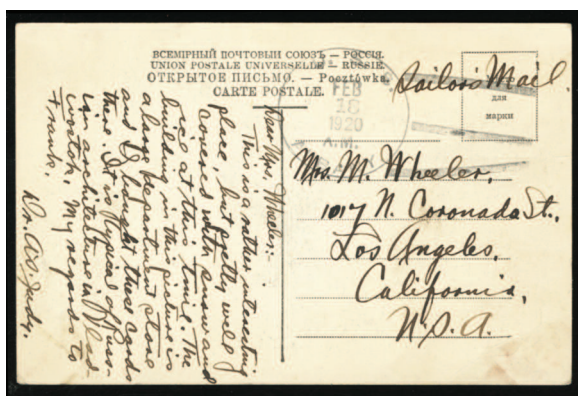 ВСЕМІРНЫЙ ПОЧТОВЫЙ СОЮЗЪ — РОССІЯ.
UNION POSTALE UNIVERSELLE — RUSSIE.
ОТКРЫТОЕ ПИСЬМО. — Pocztówka.
CARTE POSTALE.
FEB
18
1920
A.M.
Sailors Mail.
для
марки
Mrs. M. Wheeler,
1017 N. Coronada St.,
Los Angeles,
California,
U.S.A.
Dear Mrs. Wheeler:
This is a rather interesting
place, but pretty well
covered with snow and
ice at this time. The
building in this picture is
a large department store
and I bought these cards
there. It is typical of Russ-
ian architecture in Vlad-
ivostok. My regards to
Frank.
Dr. A.S. Judy.